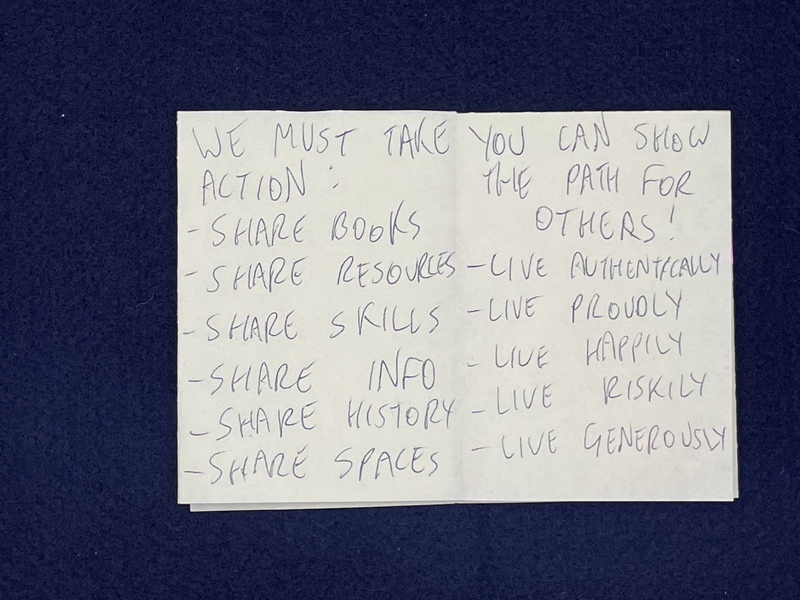 WE MUST TAKE
ACTION:
- SHARE BOOKS
- SHARE RESOURCES
- SHARE SKILLS
- SHARE INFO
- SHARE HISTORY
- SHARE SPACES
YOU CAN SHOW
THE PATH FOR
OTHERS!
- LIVE AUTHENTICALLY
- LIVE PROUDLY
- LIVE HAPPILY
- LIVE RISKILY
- LIVE GENEROUSLY